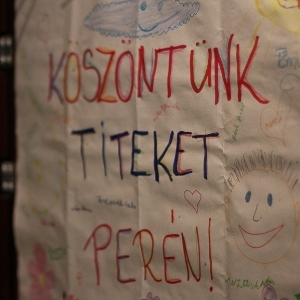 KÖSZÖNTÜNK
TITEKET
PERÉN!